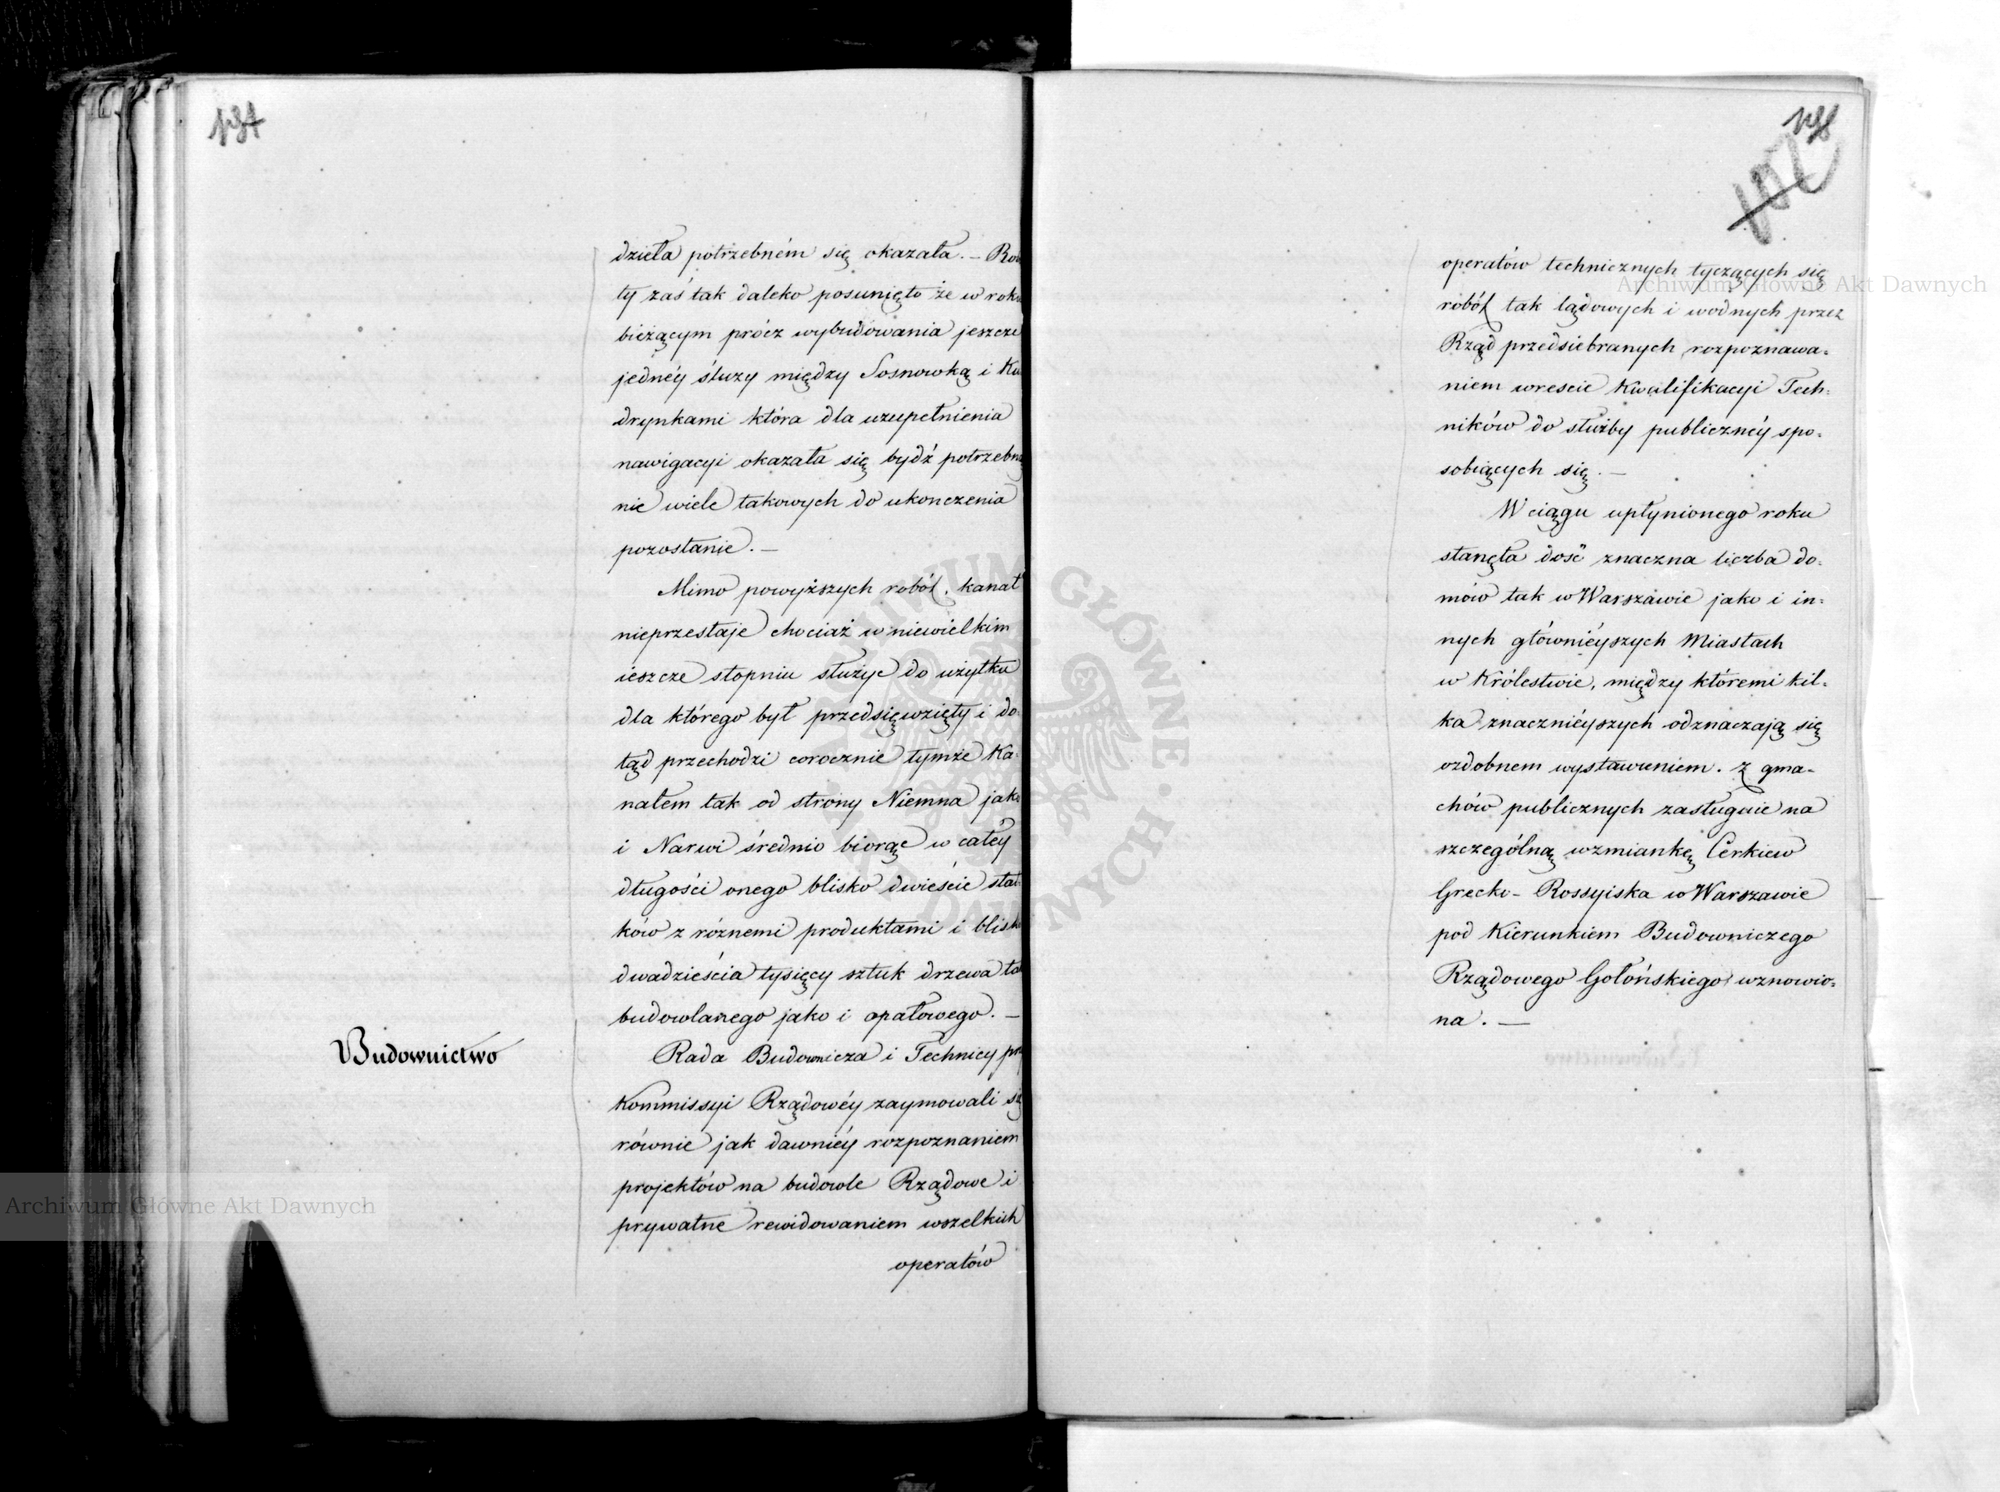 134
dzieła potrzebném się okazała. – Robo
ty zaś tak daleko posunięto że w roku
bieżącym prócz wybudowania jeszcze
jednéy śluzy między Sosnowką i Ku
drynkami która dla uzupełnienia
nawigacyi okazała się bydź potrzebną
nie wiele takowych do ukonczenia
pozostanie. –
Mimo powyższych robót, kanał
nieprzestaje chociaż w niewielkim
ieszcze stopniu służyc do użytku
dla którego był przedsięwzięty i do-
tąd przechodzi corocznie tymże Ka-
nałem tak od strony Niemna jako
i Narwi średnio biorąc w całéy
długości onego blisko dwieście stat-
ków z róznemi produktami i blisko
dwadzieścia tysięcy sztuk drzewa ta
budowlanego jako i opałowego. –
Budownictwo
Rada Budownicza i Technicy przy
Kommissyi Rządowéy zaymowali się
równie jak dawniéy rozpoznaniem
projektów na budowle Rządowe i
prywatne rewidowaniem wszelkich
operatów
102
operatów technicznych tyczących się
robót tak lądowych i wodnych przez
Rząd przedsiebranych rozpoznawa-
niem wrescie Kwalifikacyi Tech-
ników do służby publicznéy spo-
sobiących się. –
W ciągu upłynionego roku
stanęła dość znaczna liczba do-
mów tak w Warszawie jako i in-
nych głównieyszych Miastach
w Królestwie, między któremi kil-
ka znacznieyszych odznaczają się
ozdobnem wystawieniem. Z gma-
chów publicznych zasługuie na
szczególną wzmiankę Cerkiew
Grecko-Rossyiska w Warszawie
pod Kierunkiem Budowniczego
Rządowego Gołońskiego wznowio-
na. –
Archiwum Główne Akt Dawnych
Archiwum Główne Akt Dawnych
ARCHIWUM GŁÓWNE · AKT DAWNYCH ·